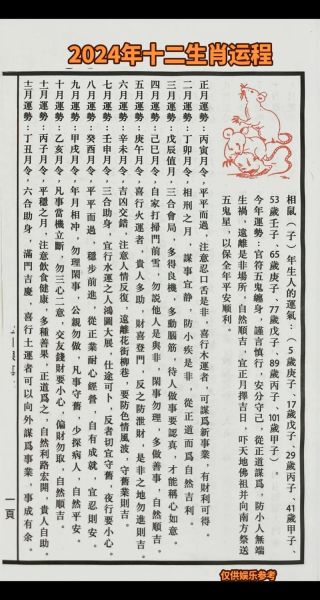 2024年十二生肖运程
相鼠（子）年生人的運氣：（5歲庚子、17歲戊子、29歲丙子、41歲甲子、
53歲壬子、65歲庚子、77歲戊子、89歲丙子、101歲甲子）。
今年運勢：官符五鬼纏身，謹言慎行，安分守己，從正道謀爲，防小人無端
生禍，遠離是非場所，自然順吉，宜正月擇吉日，叩天地佛祖并向南方祭送
五鬼星，以保全年平安順利。
正月運勢：丙寅月令，平平而過，注意忍口舌是非，喜行木運者，可謀爲新事業，有財利可得。
二月運勢：丁卯月令，相刑之月，謀事宜静，防小疾是非，從正道而爲自然吉利。
三月運勢：戊辰值月，三合會局，多得良機，多動腦筋，待人做事要認真，才能稱心如意。
四月運勢：己巳月令，自家打掃門前雪，勿説他人是與非，閑事勿理，多做善事，自然順吉。
五月運勢：庚午月令，喜行火運者，貴人多助，財喜登門，反之防泄財，是非之地勿進則吉。
六月運勢：辛未月令，吉凶交錯，注意人情反復，遠離花街柳巷，要防色情風波，守舊業則吉。
七月運勢：壬申月令，三合助身，宜行水運之人鴻圖大展，仕途可卜，反者切宜守舊，夜行要小心。
八月運勢：癸酉月令，平平而過，穩步前進，從正業耐心經營，自有成就，宜忍則安。
九月運勢：甲戌月令，年月相冲，勿理閑事，公親勿做，凡事守舊，少探病人，自然平安。
十月運勢：乙亥月令，凡事當機立斷，勿三心二意，交友錢財要小心，偏財勿取，自然順吉。
十一月運勢：丙子月令，平穩之月，注意飲食健康，多種善果，正道爲之，自然利路宏開，貴人自助。
十二月運勢：丁丑月令，六合助身，滿門吉慶，喜行土運者可以向外謀爲事業，事成有余。
一頁
仅供娱乐参考